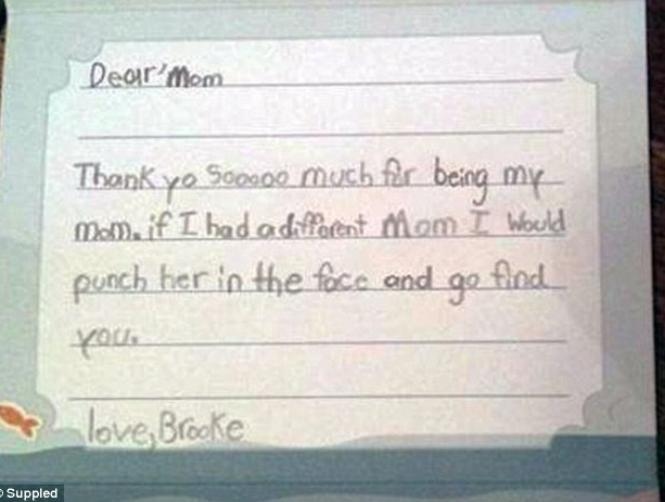 Dear Mom
Thank yo Sooooo much for being my
mom. if I had a different Mom I Would
punch her in the face and go find
you.
love, Brooke
© Suppled